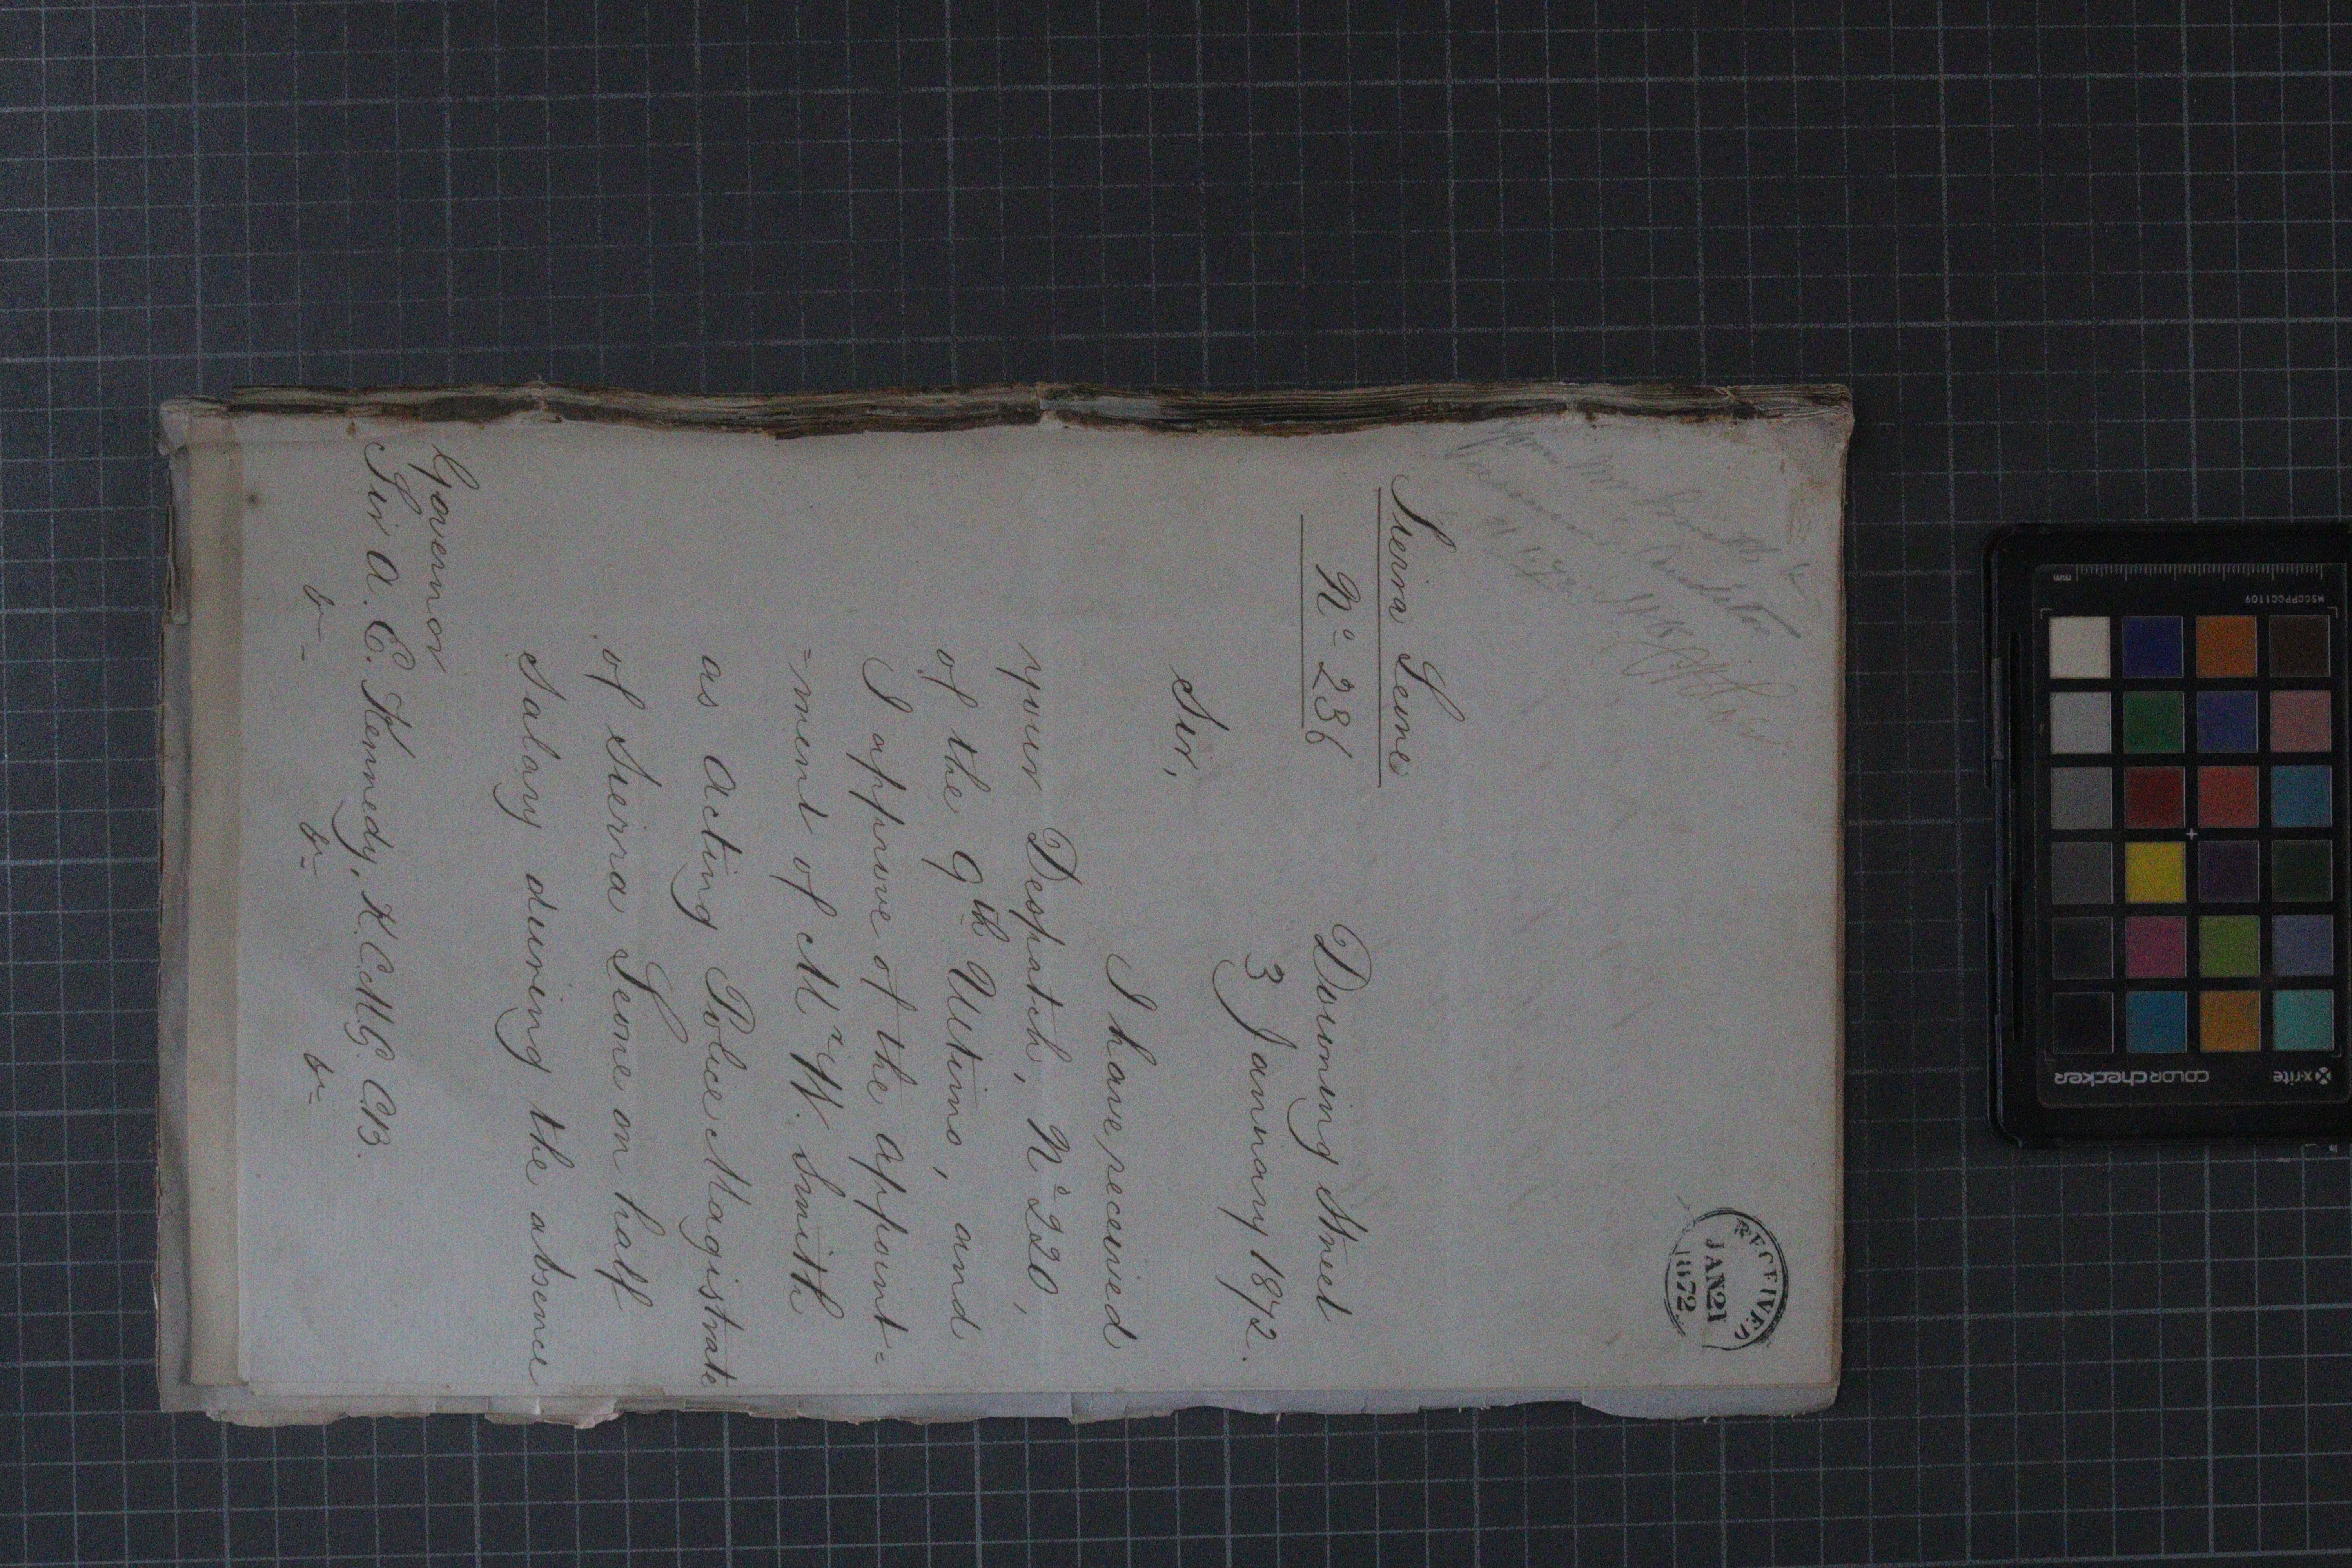 RECEIVED
JAN 21
1872
Mr Smith &
Auditor
Sierra Leone
No 236
Downing Street
3 January 1872.
Sir,
I have received
your Despatch, No 220,
of the 9th Ultimo, and
I approve of the appoint=
=ment of Mr W. Smith
as Acting Police Magistrate
of Sierra Leone on half
Salary during the absence
Governor
Sir A. E. Kennedy, K.C.M.G. C.B.
x-rite
colorchecker
MSCCPPCC1109
mm